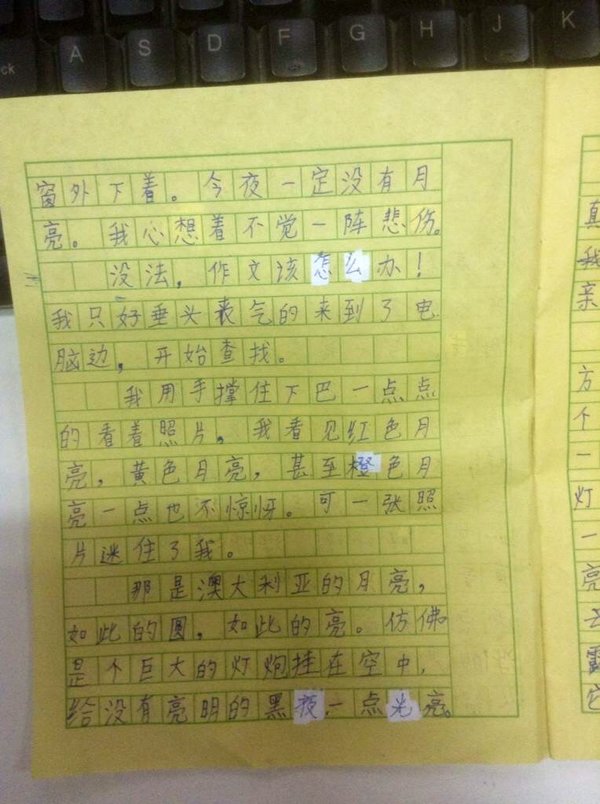 A S D F G H J K
窗外下着。今夜一定没有月
亮。我心想着不觉一阵悲伤。
没法，作文该怎么办！
我只好垂头丧气的来到了电
脑边，开始查找。
我用手撑住下巴一点点
的看着照片，我看见红色月
亮，黄色月亮，甚至橙色月
亮一点也不惊讶。可一张照
片迷住了我。
那是澳大利亚的月亮，
如此的圆，如此的亮。仿佛
是个巨大的灯炮挂在空中，
给没有亮明的黑夜一点光亮。
真
我
亲
方
个
一
灯
一
亮
去
露
它